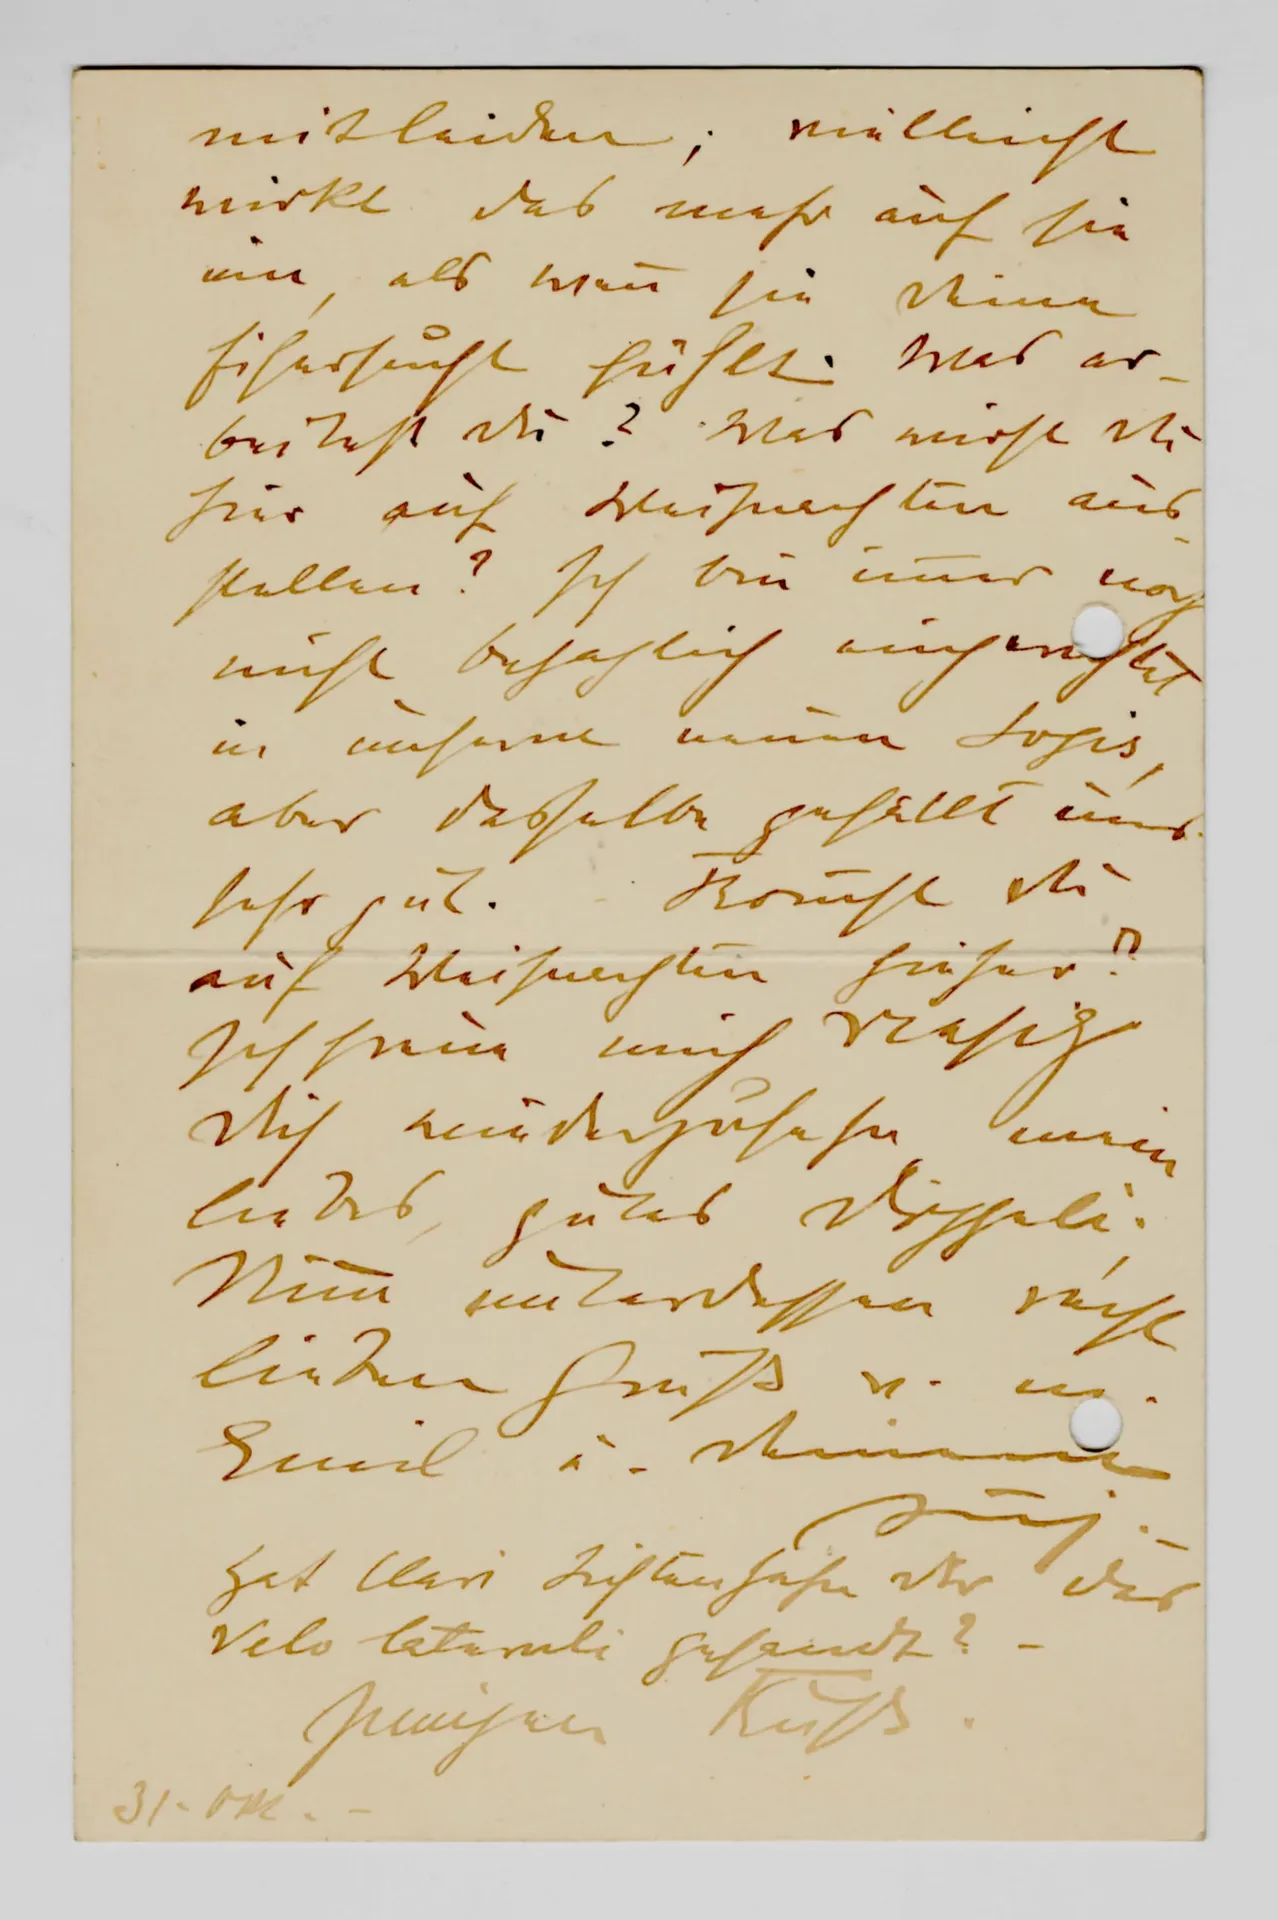 mitleiden; vielleicht
wirkt das mehr auf sie
ein, als wen̄ sie deine
Eifersucht fühlt. Was ar-
beitest du? Was wirst du
hier auf Weihnachten aus-
stellen? Ich bin im̄er noch
nicht behaglich eingerichtet
in unserm neuen Logis,
aber dasselbe gefällt uns
sehr gut. - Kom̄st du
auf Weihnachten hieher?
Ich freue mich riesig
dich wiederzusehen, mein
liebes, gutes
Nim̄ unterdessen recht
lieben Gruß v. m.
Emil u. deinem
Hat Clari dir das
Velo laternli gesandt? -
Kuß.
31. Okt. -